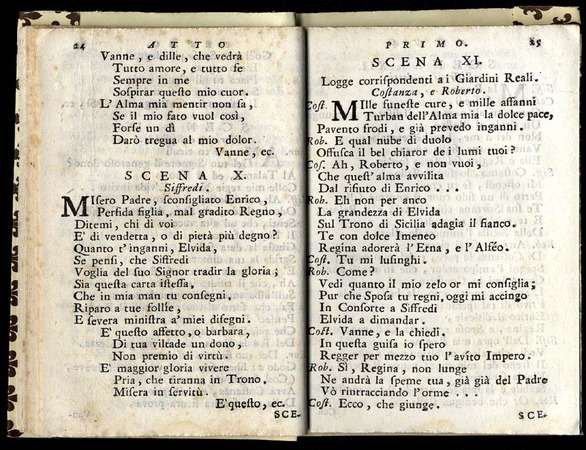 24 ATTO
Vanne, e dille, che vedrà
Tutto amore, e tutto fe
Sempre in me
Sospirar questo mio cuor.
L'Alma mia mentir non sa,
Se il mio fato vuol così,
Forse un dì
Darò tregua al mio dolor.
Vanne, ec.
SCENA X.
Siffredi.
MIsero Padre, sconsigliato Enrico,
Perfida figlia, mal gradito Regno,
Ditemi, chi di voi
E' di vendetta, o di pietà più degno?
Quanto t'inganni, Elvida,
Se pensi, che Siffredi
Voglia del suo Signor tradir la gloria;
Sia questa carta istessa,
Che in mia man tu consegni,
Riparo a tue follie,
E severa ministra a'miei disegni.
E' questo affetto, o barbara,
Di tua viltade un dono,
Non premio di virtù.
E' maggior gloria vivere
Pria, che tiranna in Trono.
Misera in servitù.
E'questo, ec.
SCE-
PRIMO. 25
SCENA XI.
Logge corrispondenti a i Giardini Reali.
Costanza, e Roberto.
Cost. MIlle funeste cure, e mille affanni
Turban dell'Alma mia la dolce pace,
Pavento frodi, e già prevedo inganni.
Rob. E qual nube di duolo
Offusca il bel chiaror de i lumi tuoi?
Cos. Ah, Roberto, e non vuoi,
Che quest'alma avvilita
Dal rifiuto di Enrico . . .
Rob. Eh non per anco
La grandezza di Elvida
Sul Trono di Sicilia adagia il fianco.
Te con dolce Imeneo
Regina adorerà l'Etna, e l'Alféo.
Cost. Tu mi lusinghi.
Rob. Come?
Vedi quanto il mio zelo or mi consiglia;
Pur che Sposa tu regni, oggi mi accingo
In Consorte a Siffredi
Elvida a dimandar.
Cost. Vanne, e la chiedi.
In questa guisa io spero
Regger per mezzo tuo l'avito Impero.
Rob. Sì, Regina, non lunge
Ne andrà la speme tua, già già del Padre
Vò rintracciando l'orme . . .
Cost. Ecco, che giunge.
SCE-